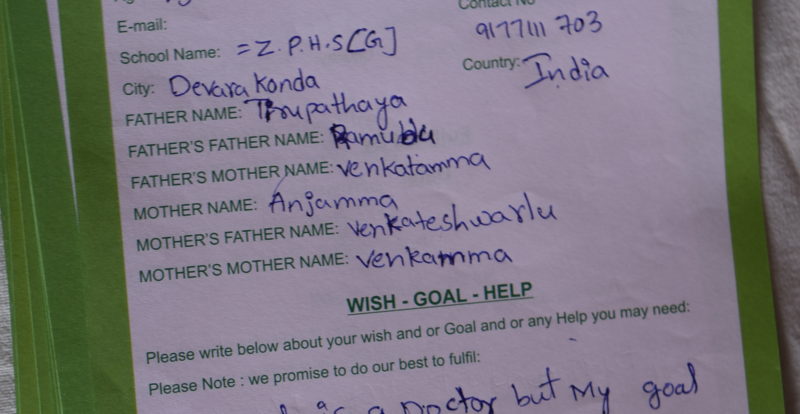 Contact No
E-mail:
9177111 703
School Name: = Z.P.H.S[G]
City: Devarakonda
Country: India
FATHER NAME: Thrupathaya
FATHER'S FATHER NAME: Ramuldu
FATHER'S MOTHER NAME: venkatamma
MOTHER NAME: Anjamma
MOTHER'S FATHER NAME: venkateshwarlu
MOTHER'S MOTHER NAME: venkamma
WISH - GOAL - HELP
Please write below about your wish and or Goal and or any Help you may need:
Please Note : we promise to do our best to fulfil:
a Doctor but My goal